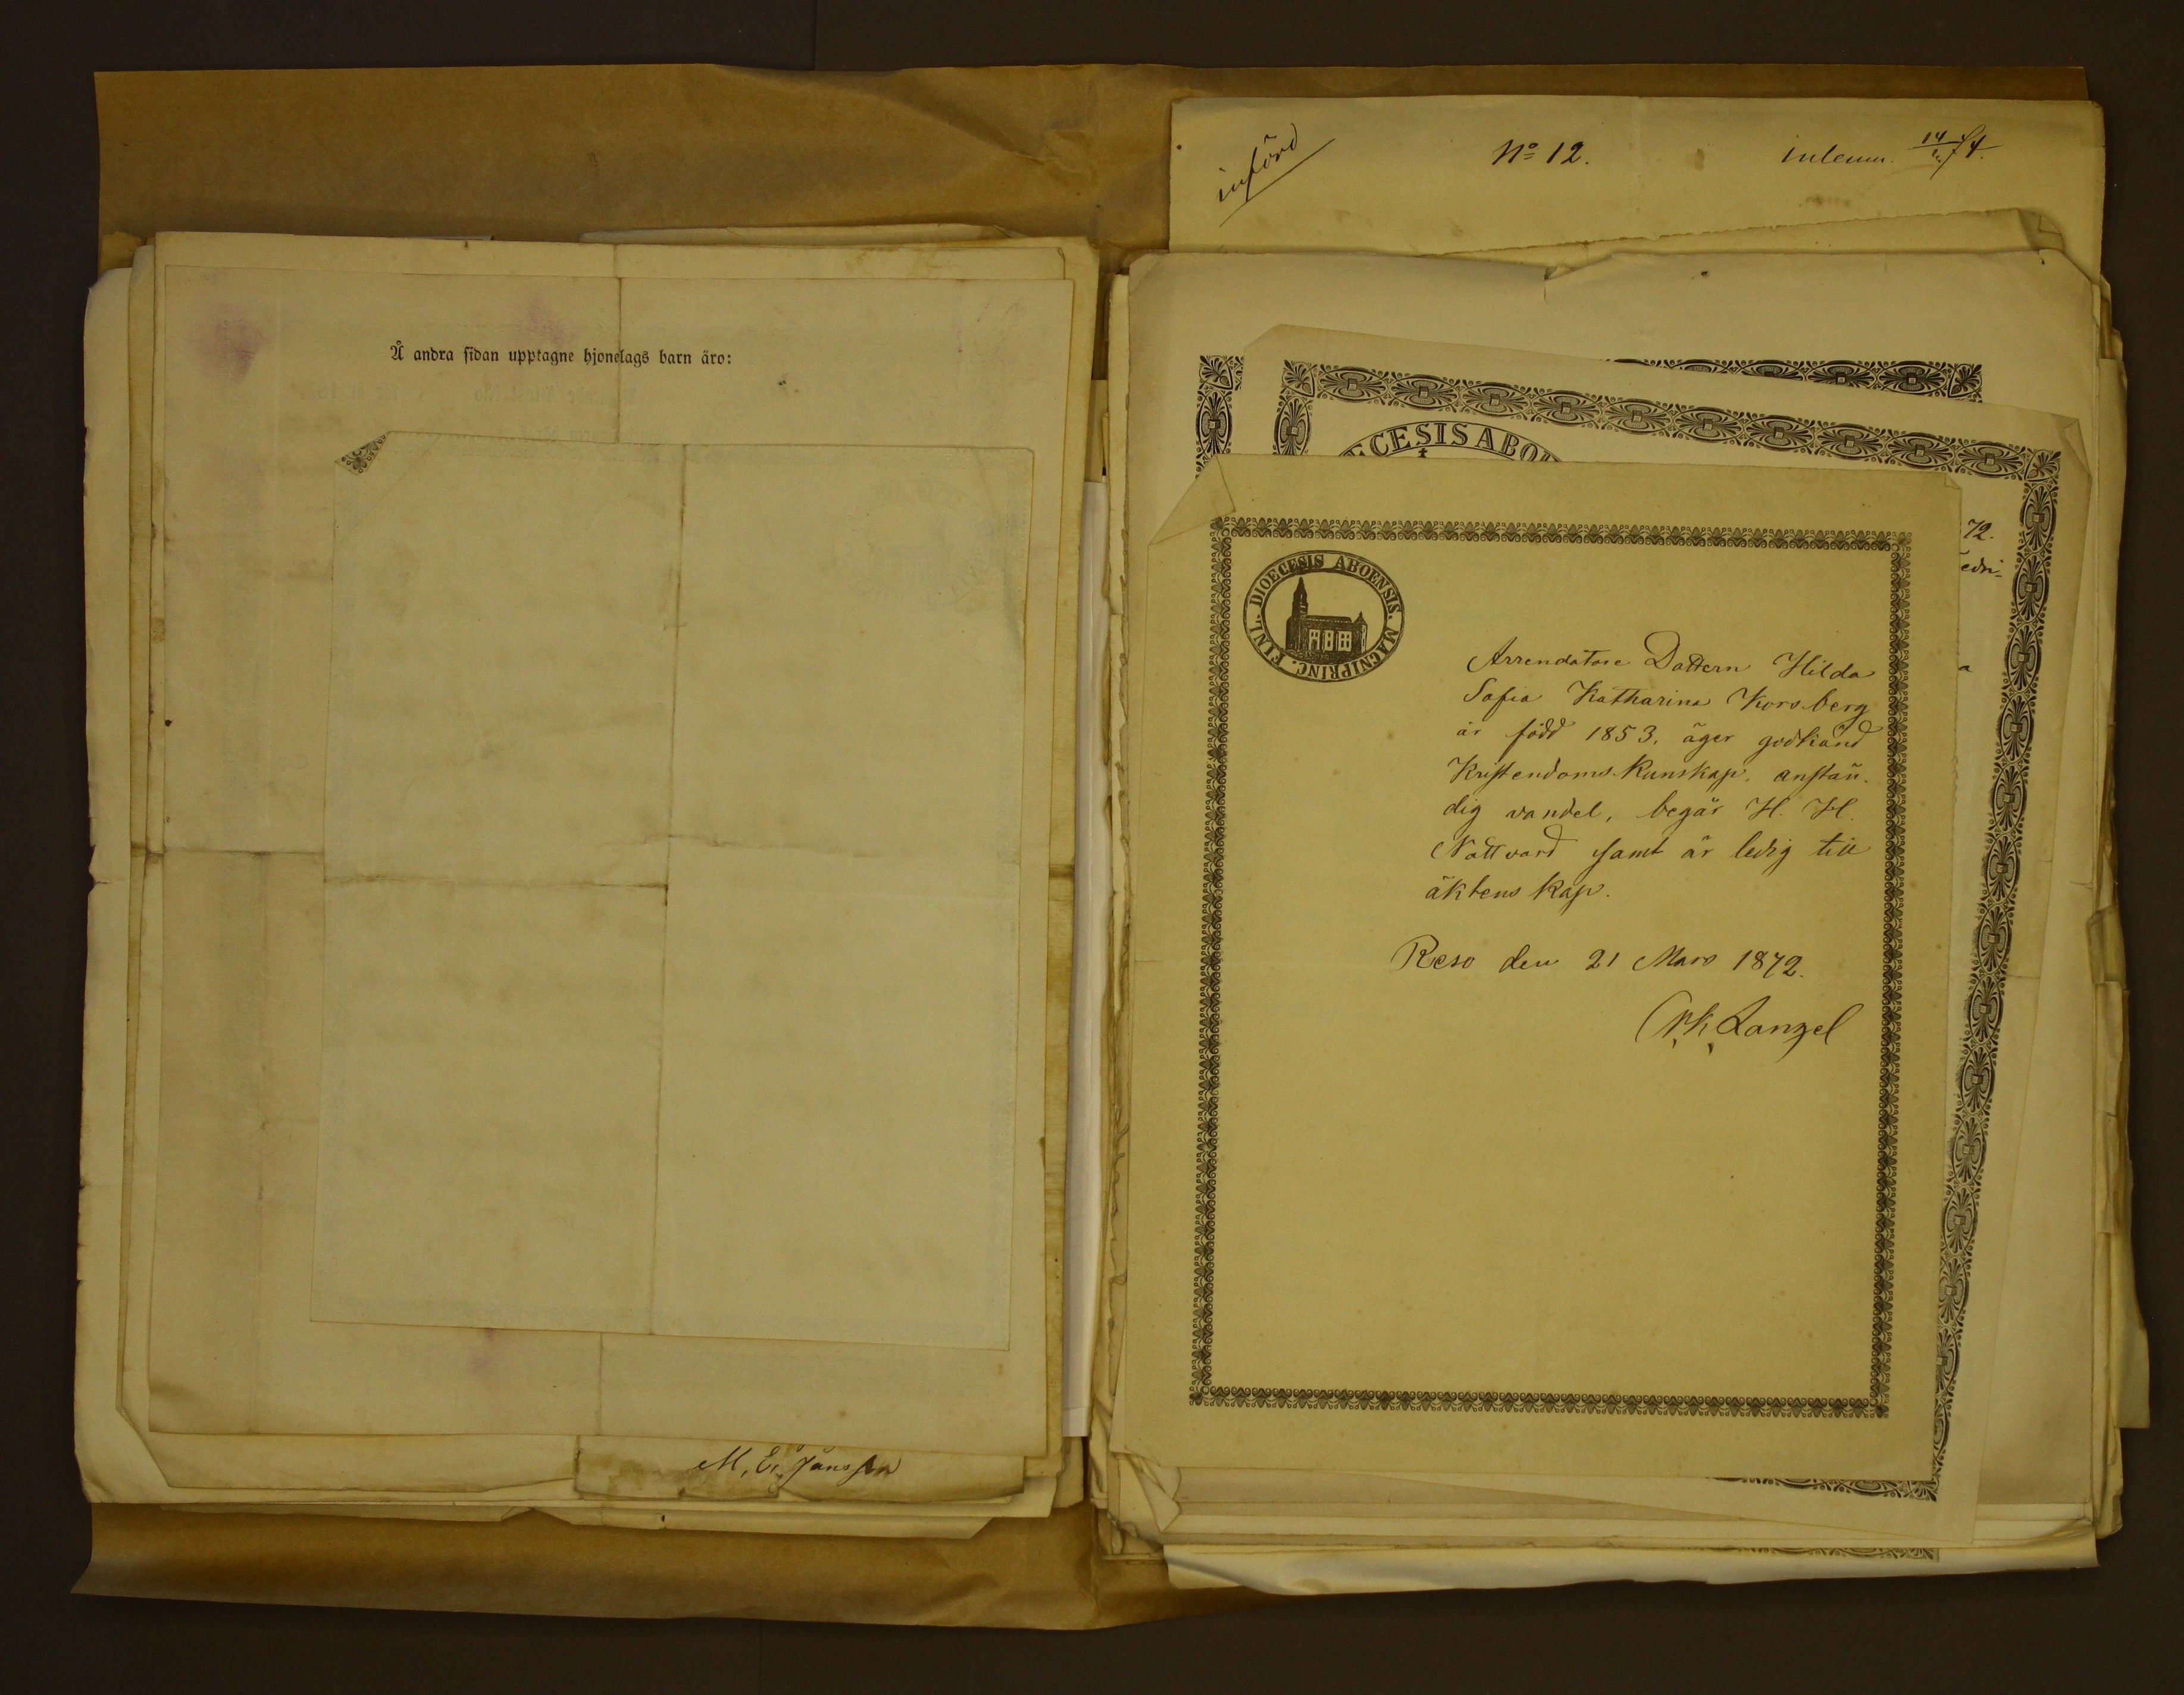 Å andra sidan upptagne hjonelags barn äro:
M. E. Jansson
införd
No 12.
inlemn. 14/
ECESIS ABO
72.
edri-
a
DIOECESIS ABOENSIS. MAGNIPRINC. FINL.
Arrendators Dottern Hilda
Sofia Katharina Korsberg
är född 1853, äger godkänd
Kristendoms Kunskap, anstän-
dig vandel, begår H. H.
Nattvard samt är ledig till
äktenskap.
Reso den 21 Mars 1872.
Lanzel